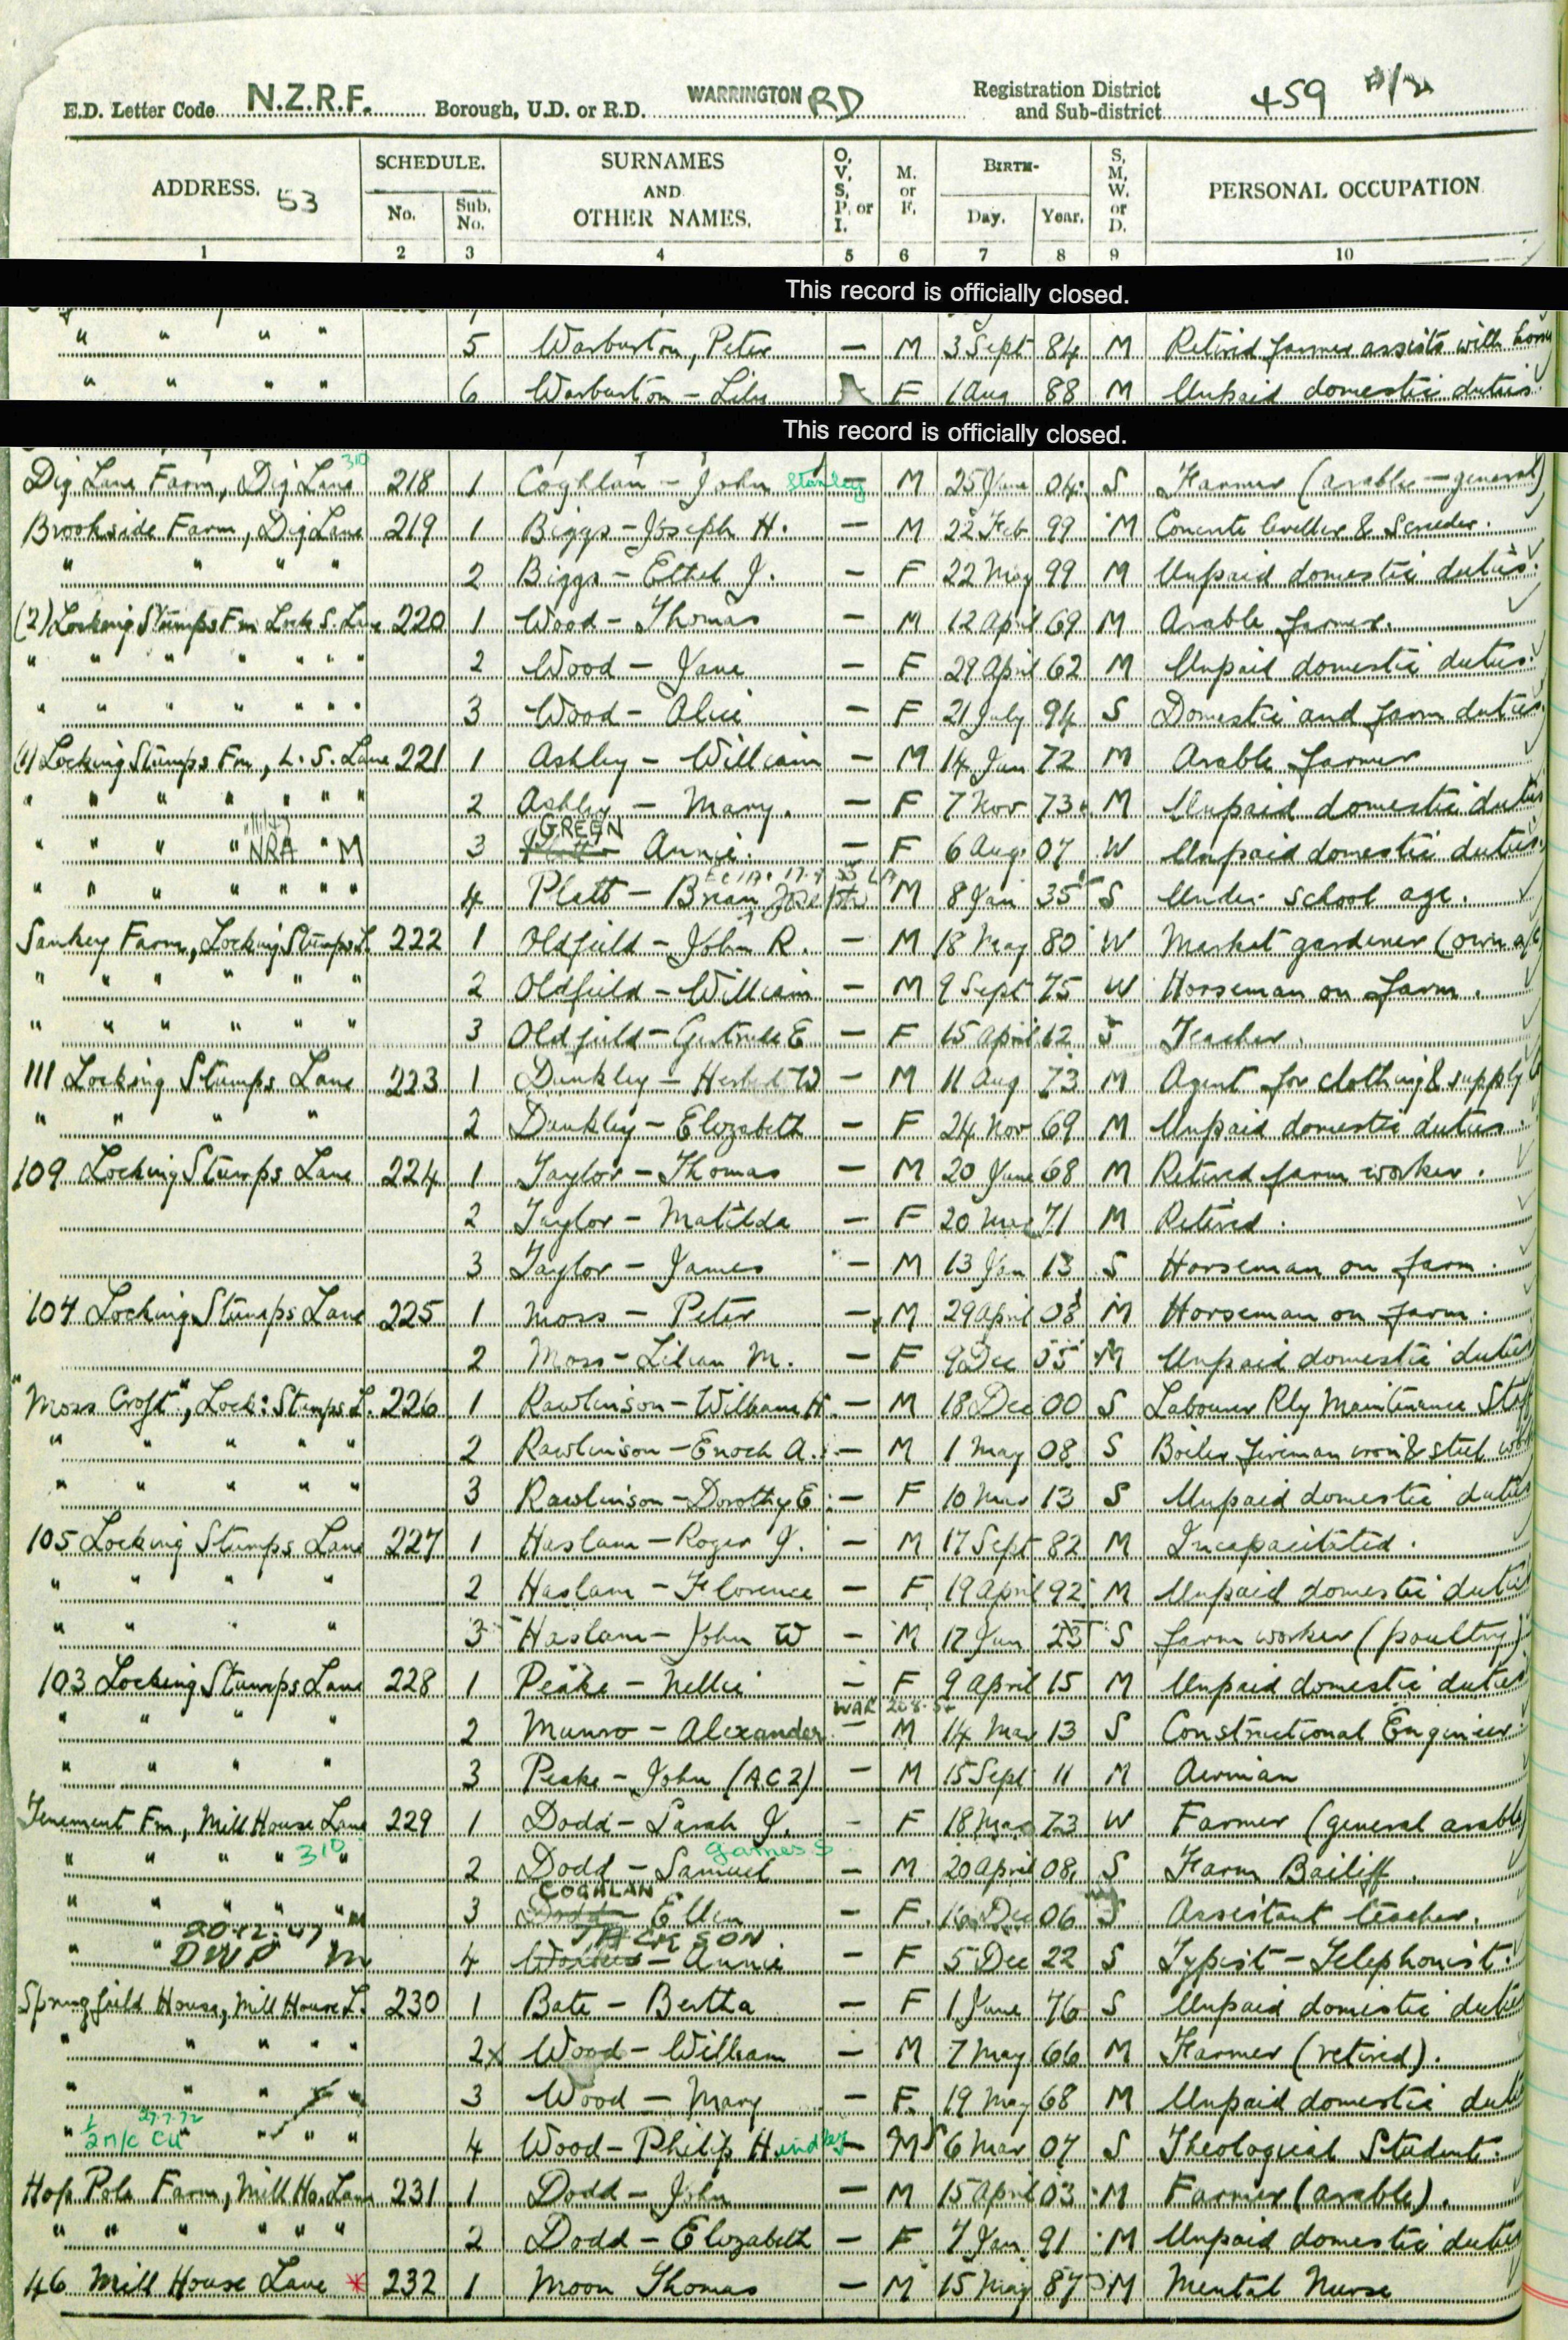 E.D. Letter Code N.Z.R.F. Borough, U.D. or R.D. WARRINGTON RD Registration District and Sub-district 459
ADDRESS. 53 SCHEDULE. No. Sub. No. SURNAMES AND OTHER NAMES. O, V, S, P. or I. M. or F. BIRTH- Day. Year. S, M, W. or D. PERSONAL OCCUPATION
1 2 3 4 5 6 7 8 9 10
This record is officially closed.
" " " " 5 Warburton, Peter — M 3 Sept 84 M Retired farmer assists with
" " " " 6 Warburton - Lily F 1 Aug 88 M Unpaid domestic duties.
This record is officially closed.
Dig Lane Farm, Dig Lane 310 218 1 Coghlan - John Stanley — M 25 June 04 S Farmer (arable - general)
Brookside Farm, Dig Lane 219 1 Biggs - Joseph H. — M 22 Feb 99 M Concrete leveller & Screeder.
" " " " 2 Biggs - Ethel J. — F 22 May 99 M Unpaid domestic duties.
(2) Locking Stumps Fm Lock S. Lane 220 1 Wood - Thomas — M 12 April 69 M Arable farmer.
" " " " " " " 2 Wood - Jane — F 29 April 62 M Unpaid domestic duties.
" " " " " " " 3 Wood - Alice — F 21 July 94 S Domestic and farm duties.
(1) Locking Stumps Fm, L. S. Lane 221 1 Ashley - William — M 14 Jan 72 M Arable farmer
" " " " " " " 2 Ashley - Mary. — F 7 Nov 73 M Unpaid domestic duties
" " " " NRA " M 3 GREEN Annie. — F 6 Aug 07 W Unpaid domestic duties.
" " " " " " " 4 Platt - Brian Joseph M 8 Jan 35 S Under school age.
Sankey Farm, Locking Stumps L. 222 1 Oldfield - John R. — M 18 May 80 W Market gardener (own a/c)
" " " " " " 2 Oldfield - William — M 9 Sept 75 W Horseman on farm.
" " " " " " 3 Oldfield - Gertrude E — F 15 April 12 S Teacher.
111 Locking Stumps Lane 223 1 Dunkley - Herbert W — M 11 Aug 73 M Agent for clothing & supply
" " " " 2 Dunkley - Elizabeth — F 24 Nov 69 M Unpaid domestic duties.
109 Locking Stumps Lane 224 1 Taylor - Thomas — M 20 June 68 M Retired farm worker.
2 Taylor - Matilda — F 20 Mar 71 M Retired.
3 Taylor - James — M 13 Jan 13 S Horseman on farm.
104 Locking Stumps Lane 225 1 Moss - Peter — M 29 April 08 M Horseman on farm.
2 Moss - Lilian M. — F 9 Dec M Unpaid domestic duties
"Moss Croft", Lock: Stumps L. 226 1 Rawlinson - William H. — M 18 Dec 00 S Labourer Rly Maintenance Staff
" " " " " 2 Rawlinson - Enoch A. — M 1 May 08 S Boiler fireman iron & steel
" " " " " 3 Rawlinson - Dorothy E. — F 10 Mar 13 S Unpaid domestic duties
105 Locking Stumps Lane 227 1 Haslam - Roger J. — M 17 Sept 82 M Incapacitated.
" " " " 2 Haslam - Florence — F 19 April 92 M Unpaid domestic duties
" " " " 3 Haslam - John W — M 17 Jun 23 S farm worker (poultry)
103 Locking Stumps Lane 228 1 Peake - Nellie — F 9 April 15 M Unpaid domestic duties
" " " " 2 Munro - Alexander — M 14 Mar 13 S Constructional Engineer.
" " " " 3 Peake - John (AC2) — M 15 Sept 11 M Airman
Tenement Fm, Mill House Lane 229 1 Dodd - Sarah J. — F 18 Mar 73 W Farmer (general arable)
" " " " 310 " 2 Dodd - Samuel James S — M 20 April 08 S Farm Bailiff
" " " " " M 3 COGHLAN Dodd Ellen — F 16 Dec 06 S Assistant teacher.
" 20.12.47 DWP M 4 JACKSON - Annie — F 5 Dec 22 S Typist - Telephonist.
Springfield House, Mill House L. 230 1 Bate - Bertha — F 1 June 76 S Unpaid domestic duties
" " " " " 2x Wood - William — M 7 May 66 M Farmer (retired).
" " " " 3 Wood - Mary — F 19 May 68 M Unpaid domestic duties
" 27.7.72 " " " 4 Wood - Philip Hindley — M 6 Mar 07 S Theological Student.
Hop Pole Farm, Mill Ho. Lane 231 1 Dodd - John — M 15 April 03 M Farmer (arable).
" " " " " " 2 Dodd - Elizabeth — F 7 Jan 91 M Unpaid domestic duties
46 Mill House Lane * 232 1 Moon Thomas — M 15 May 87 M Mental Nurse